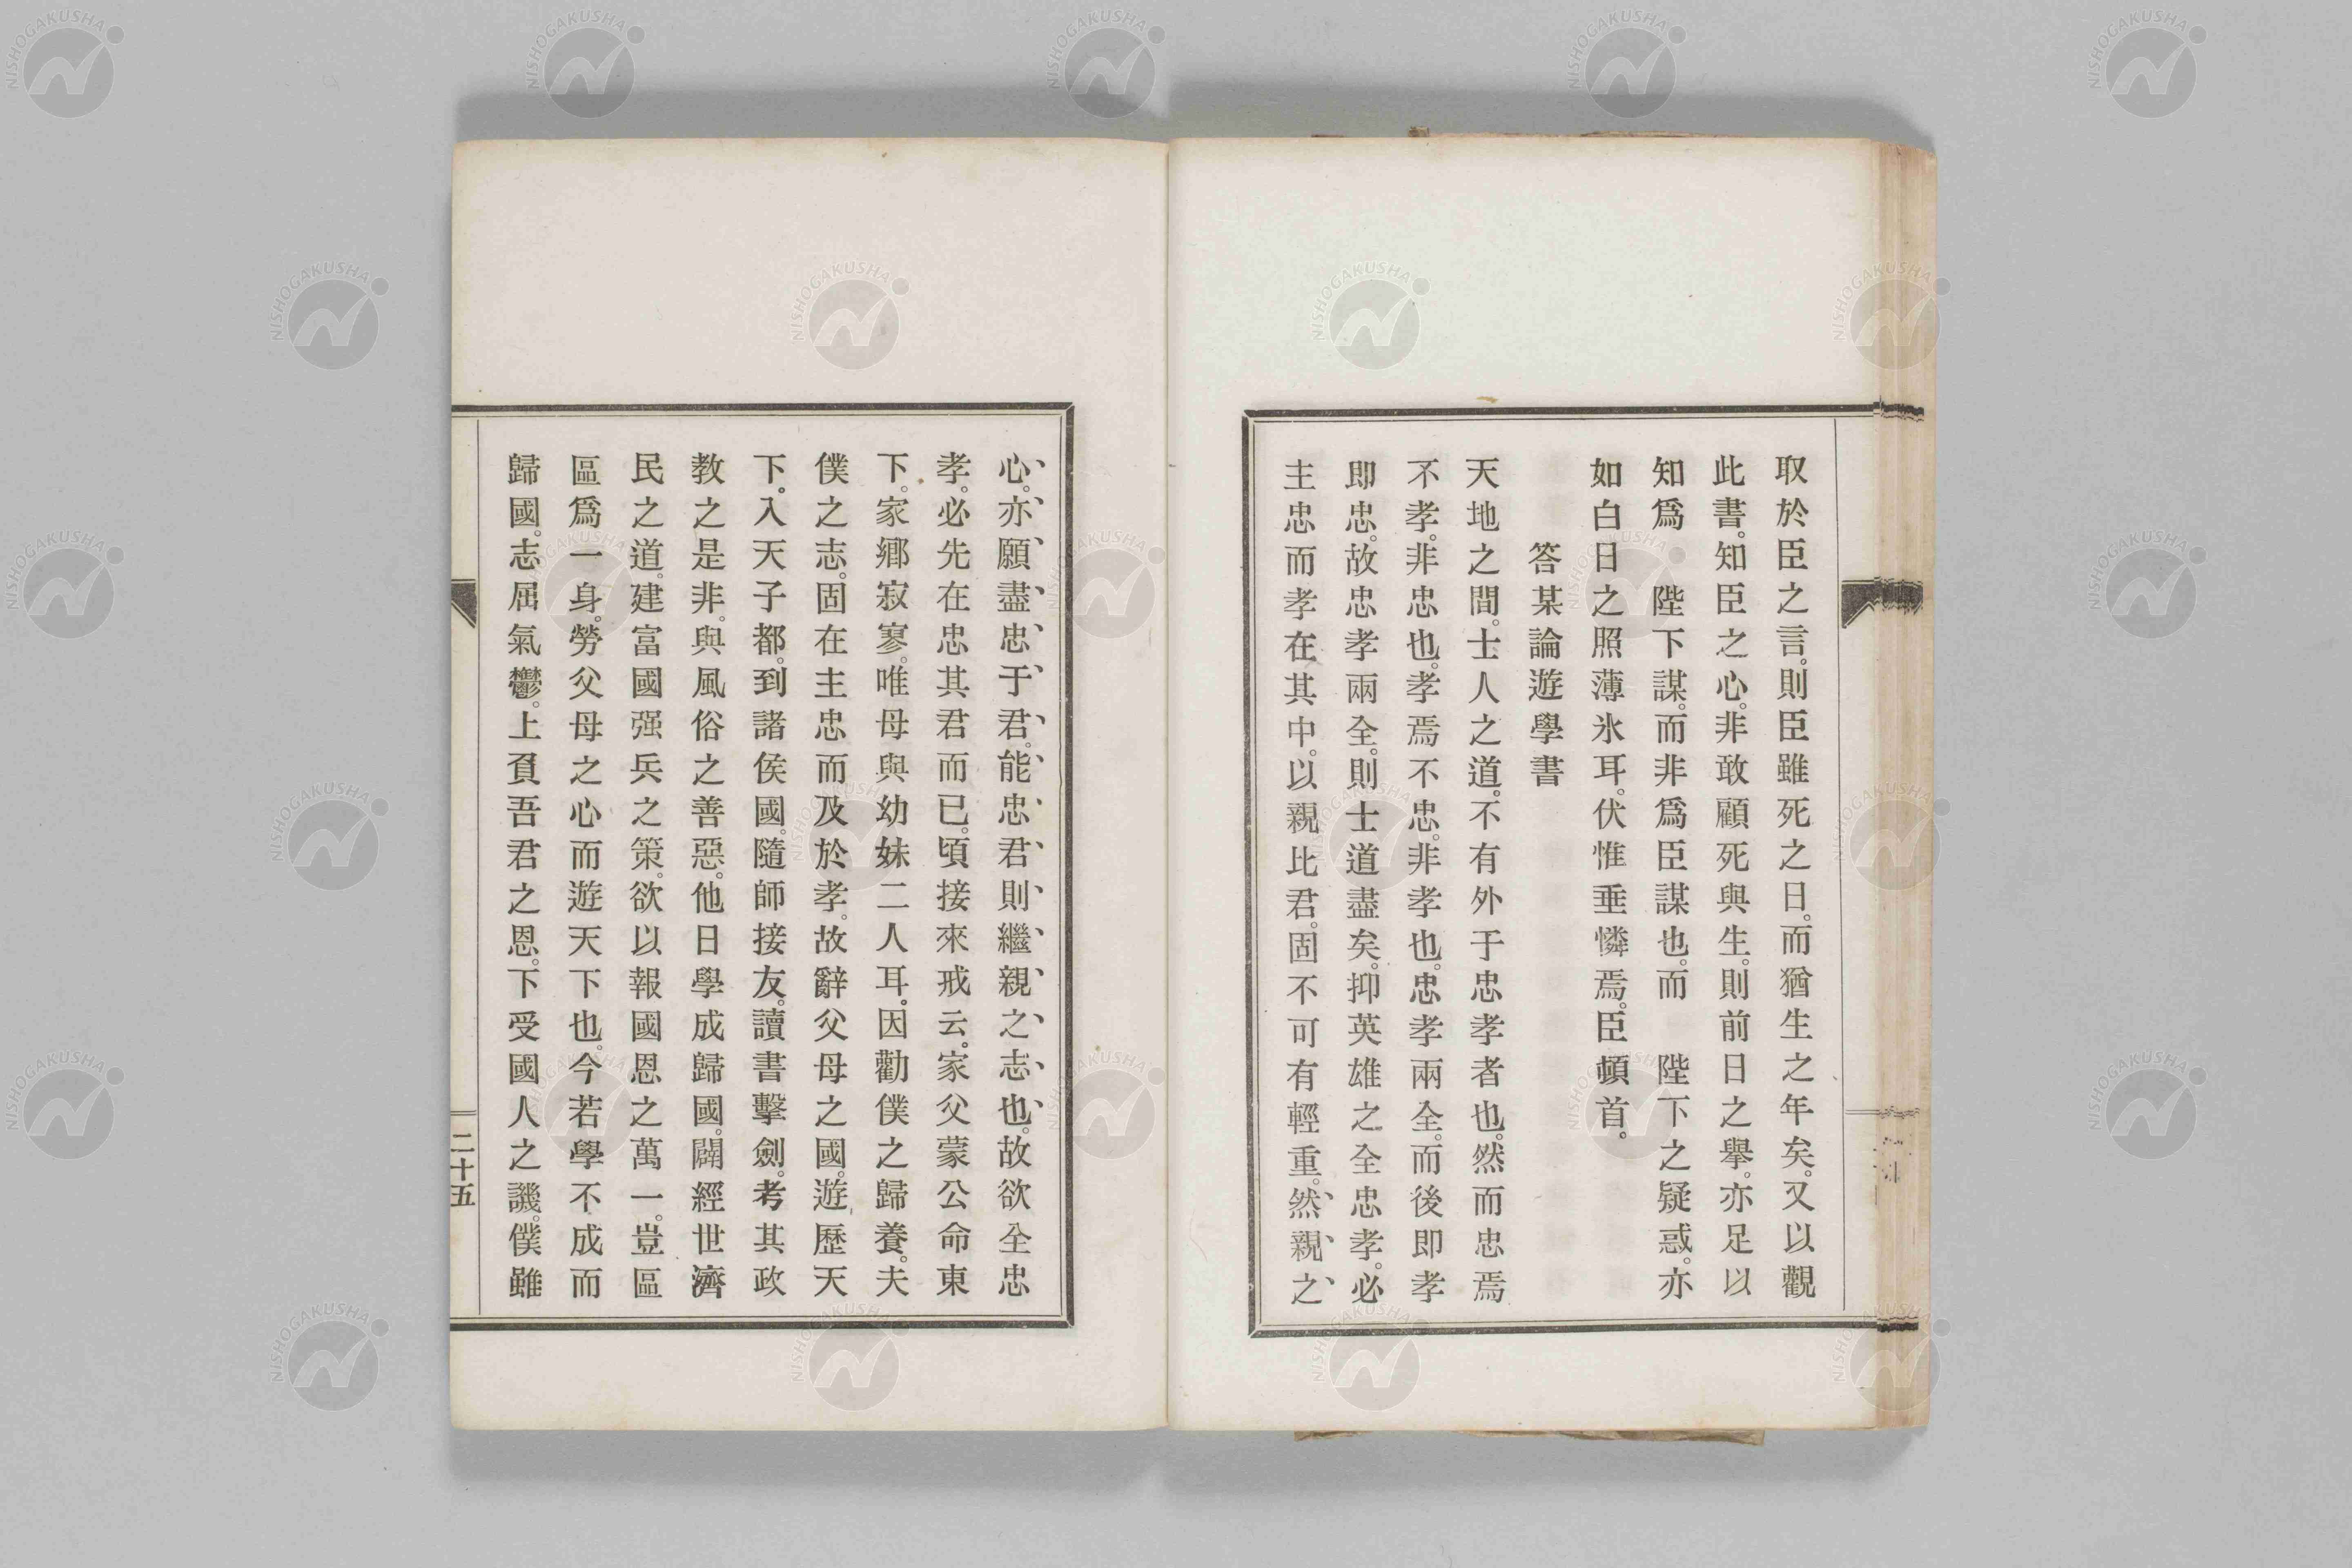 取於臣之言。則臣雖死之日。而猶生之年矣。又以觀
此書。知臣之心。非敢顧死與生。則前日之擧。亦足以
知爲　陛下謀。而非爲臣謀也。而　陛下之疑惑。亦
如白日之照薄氷耳。伏惟垂憐焉。臣頓首。
答某論遊學書
天地之間。士人之道。不有外于忠孝者也。然而忠焉
不孝。非忠也。孝焉不忠。非孝也。忠孝兩全。而後即孝
即忠。故忠孝兩全。則士道盡矣。抑英雄之全忠孝。必
主忠而孝在其中。以親比君。固不可有輕重。然親之
心。亦願盡忠于君。能忠君則繼親之志也。故欲全忠
孝。必先在忠其君而已。頃接來戒云。家父蒙公命東
下。家鄉寂寥。唯母與幼妹二人耳。因勸僕之歸養。夫
僕之志。固在主忠而及於孝。故辭父母之國。遊歷天
下。入天子都。到諸侯國。隨師接友。讀書擊劍。考其政
教之是非。與風俗之善惡。他日學成歸國。闢經世濟
民之道。建富國强兵之策。欲以報國恩之萬一。豈區
區爲一身。勞父母之心而遊天下也。今若學不成而
歸國。志屈氣鬱。上負吾君之恩。下受國人之譏。僕雖
二十五
NISHOGAKUSHA